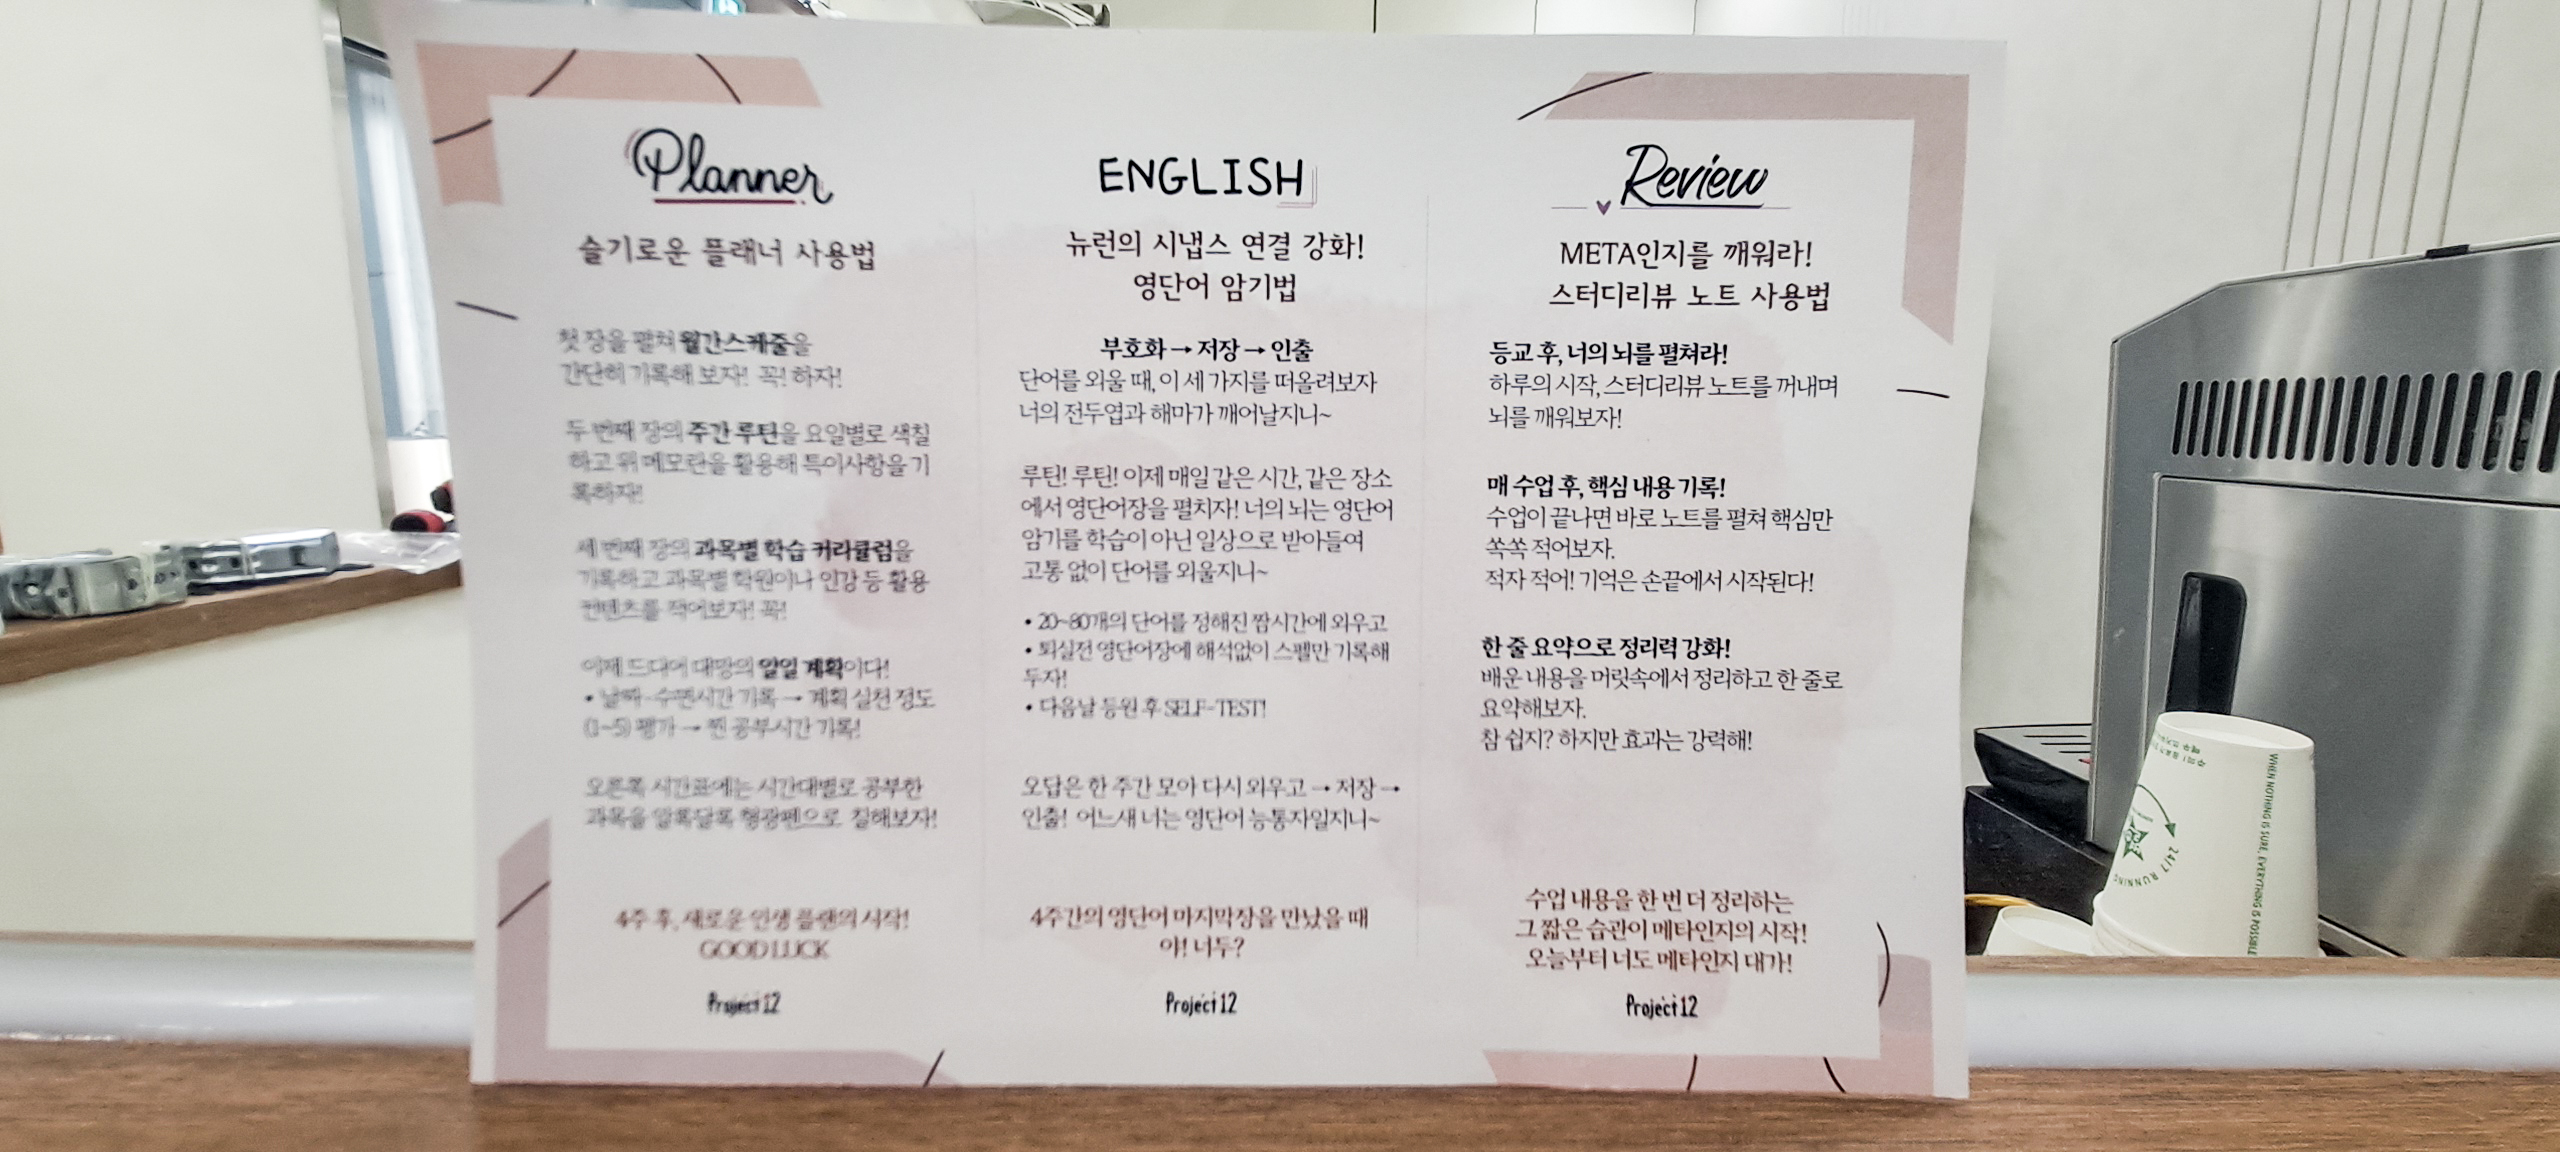 Planner
슬기로운 플래너 사용법
첫 장을 펼쳐 월간스케줄을
간단히 기록해 보자! 꼭! 하자!
두 번째 장의 주간 루틴을 요일별로 색칠
하고 위 메모란을 활용해 특이사항을 기
록하자!
세 번째 장의 과목별 학습 커리큘럼을
기록하고 과목별 학원이나 인강 등 활용
컨텐츠를 적어보자! 꼭!
이제 드디어 대망의 일일 계획이다!
• 날짜-수면시간 기록 → 계획 실천 정도
(1~5) 평가 → 찐 공부시간 기록!
오른쪽 시간표에는 시간대별로 공부한
과목을 알록달록 형광펜으로 칠해보자!
4주 후, 새로운 인생 플랜의 시작!
GOOD LUCK
Project12
ENGLISH
뉴런의 시냅스 연결 강화!
영단어 암기법
부호화 → 저장 → 인출
단어를 외울 때, 이 세 가지를 떠올려보자
너의 전두엽과 해마가 깨어날지니~
루틴! 루틴! 이제 매일 같은 시간, 같은 장소
에서 영단어장을 펼치자! 너의 뇌는 영단어
암기를 학습이 아닌 일상으로 받아들여
고통 없이 단어를 외울지니~
• 20~80개의 단어를 정해진 짬시간에 외우고
• 퇴실전 영단어장에 해석없이 스펠만 기록해
두자!
• 다음날 등원 후 SELF-TEST!
오답은 한 주간 모아 다시 외우고 → 저장 →
인출! 어느새 너는 영단어 능통자일지니~
4주간의 영단어 마지막장을 만났을 때
야! 너두?
Project12
Review
META인지를 깨워라!
스터디리뷰 노트 사용법
등교 후, 너의 뇌를 펼쳐라!
하루의 시작, 스터디리뷰 노트를 꺼내며
뇌를 깨워보자!
매 수업 후, 핵심 내용 기록!
수업이 끝나면 바로 노트를 펼쳐 핵심만
쏙쏙 적어보자.
적자 적어! 기억은 손끝에서 시작된다!
한 줄 요약으로 정리력 강화!
배운 내용을 머릿속에서 정리하고 한 줄로
요약해보자.
참 쉽지? 하지만 효과는 강력해!
수업 내용을 한 번 더 정리하는
그 짧은 습관이 메타인지의 시작!
오늘부터 너도 메타인지 대가!
Project12
24/7 RUNNING
WHEN NOTHING IS SURE, EVERYTHING IS POSSIBLE